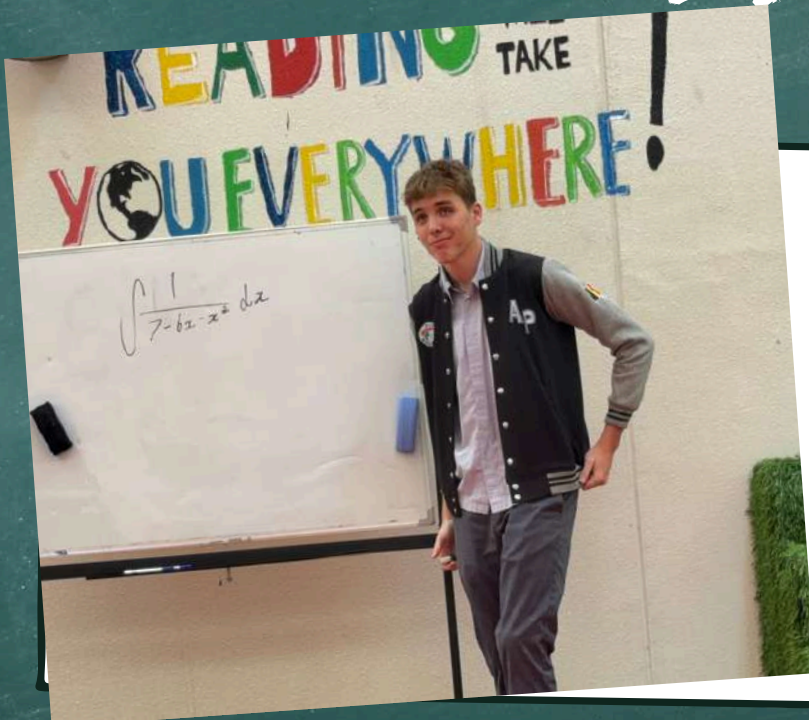 READING
TAKE
YOU EVERYWHERE!
∫ 1/(7-6x-x²) dx
AP